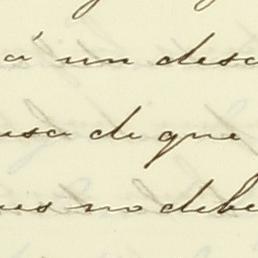 á un desc
usa de que
ues no debe